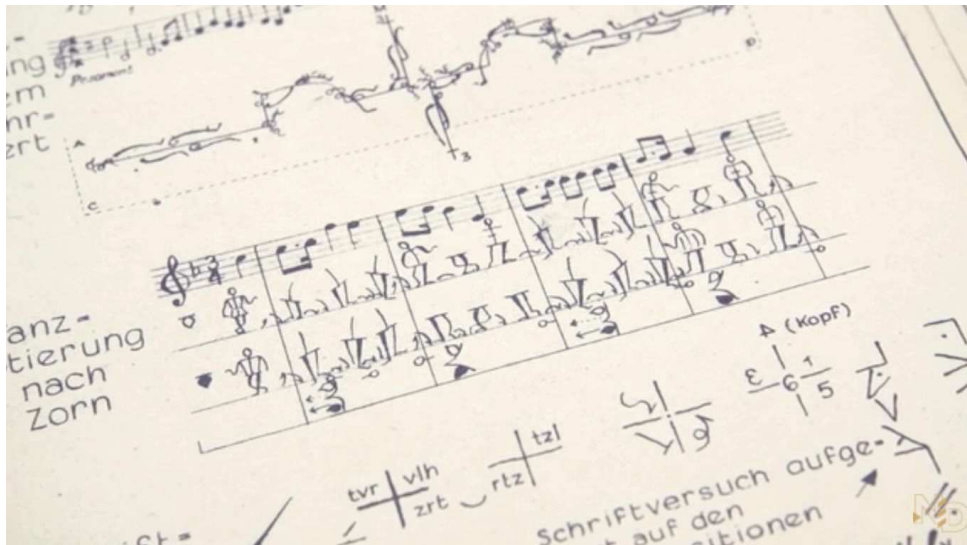 ng
em
hr-
ert
A
B
C
anz-
tierung
nach
Zorn
(Kopf)
tvr vlh
zrt
rtz tzl
ε 1
6 5
Schriftversuch aufge-
t auf den
sitionen
ft-